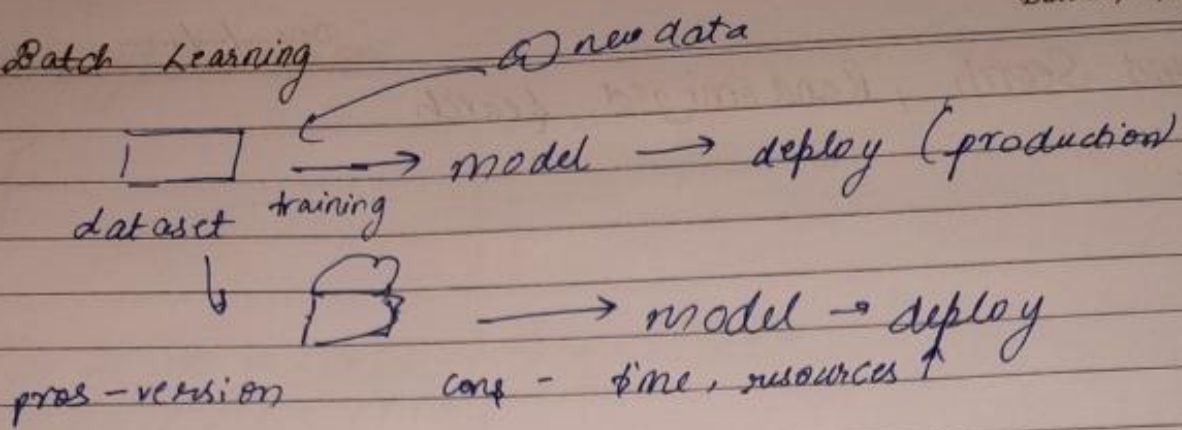 Batch Learning
new data
→ model → deploy (production)
dataset training
→ model → deploy
pros - version cons - time, resources ↑